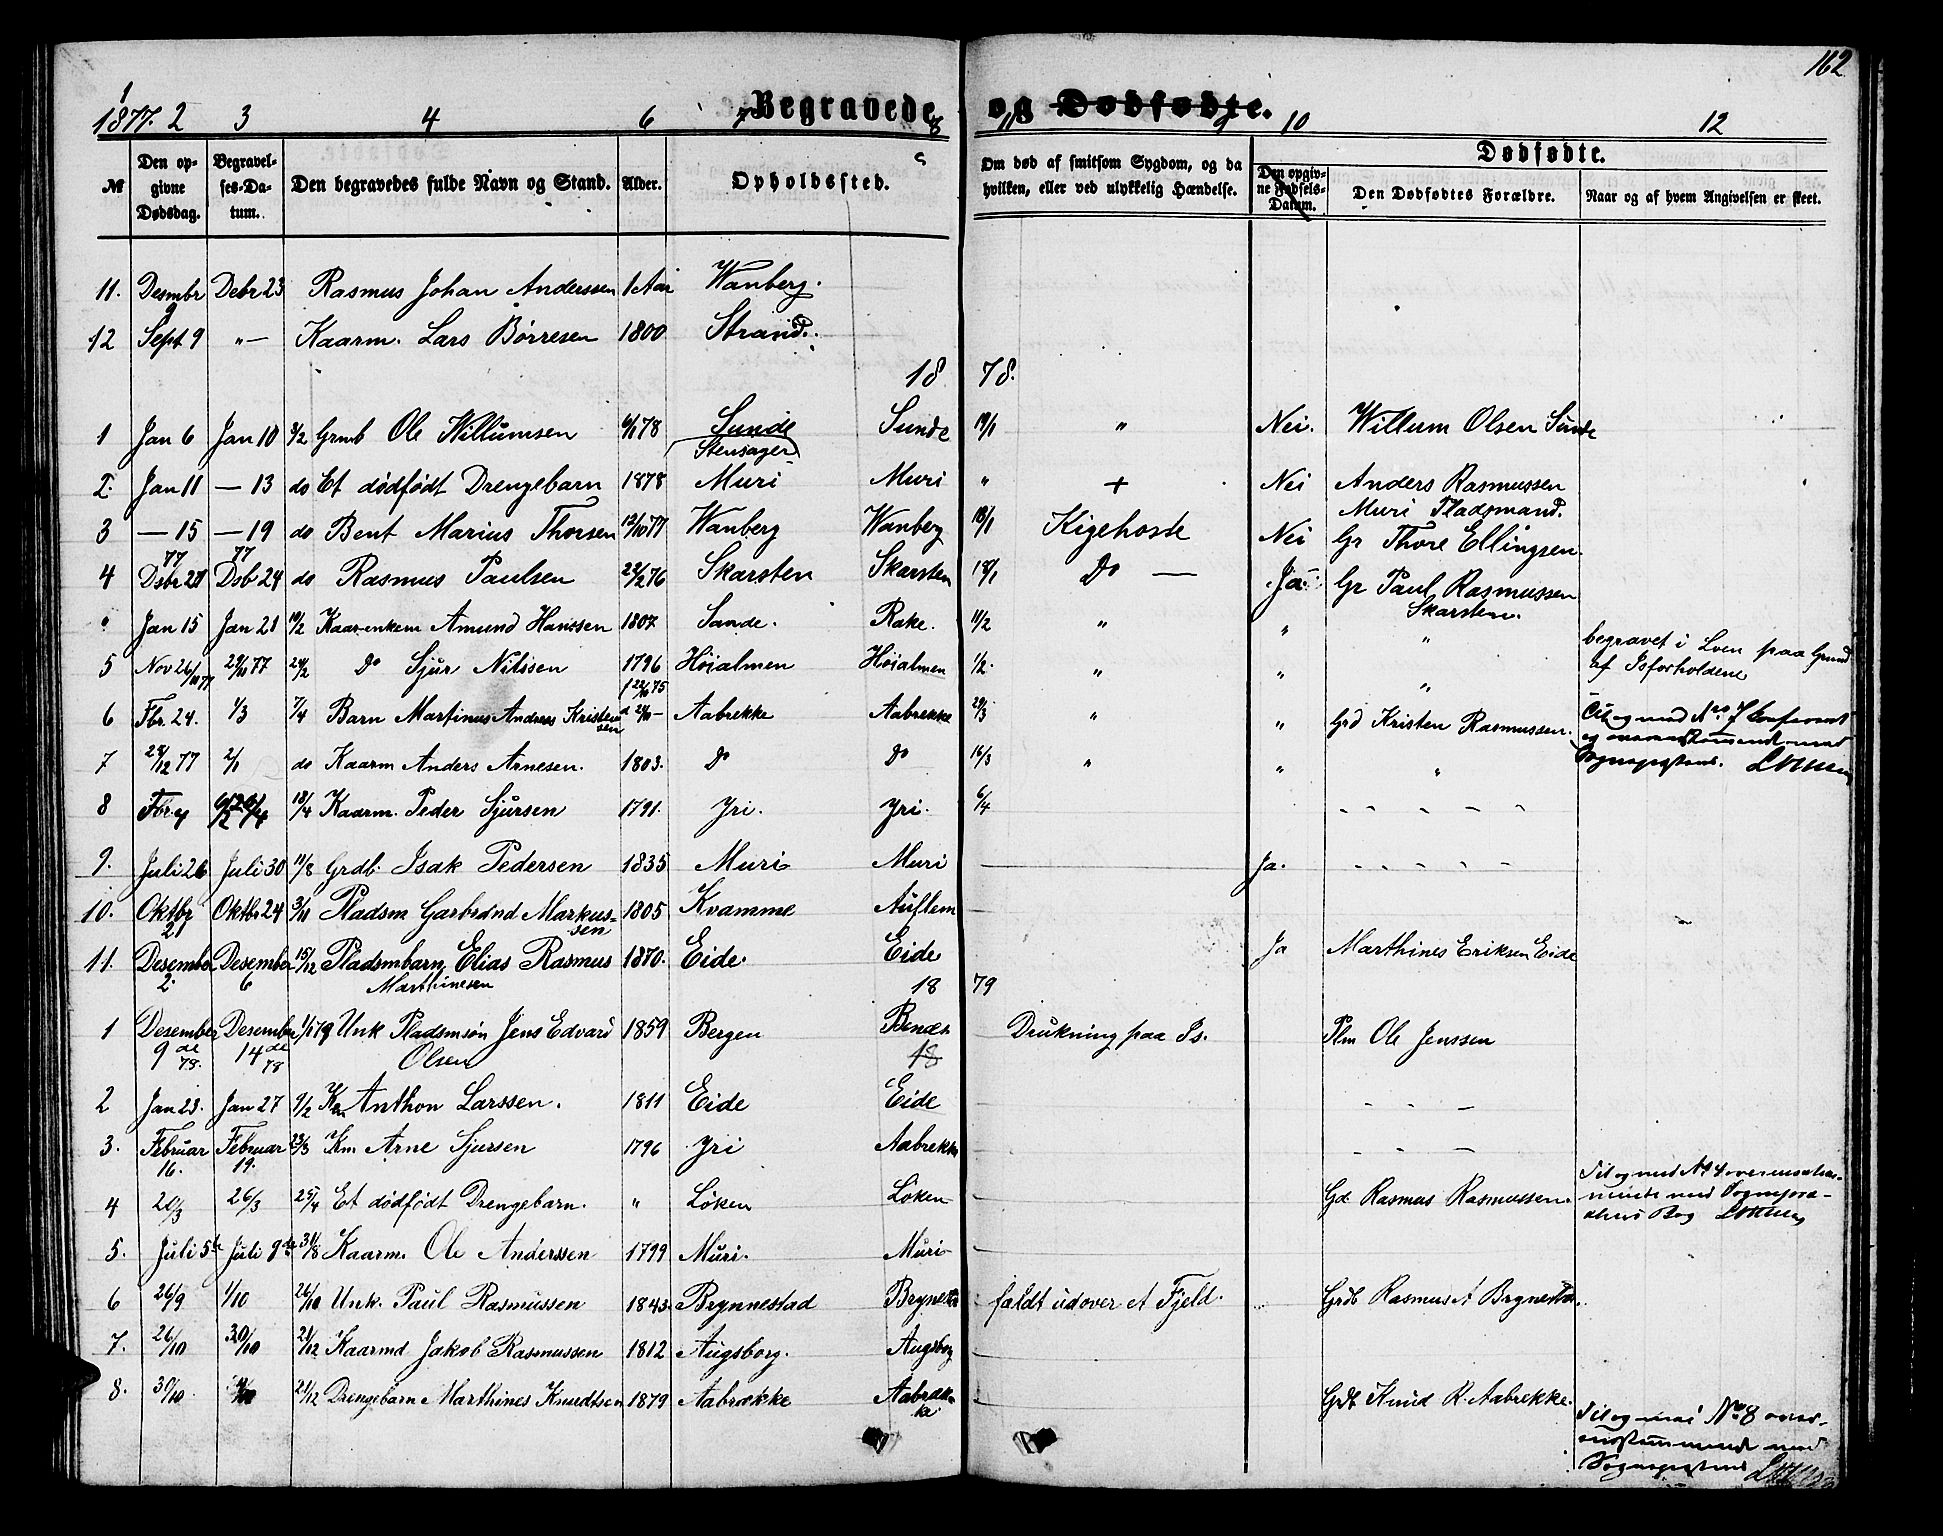 162
1
1877. 2 3 4 6 7 8 11 9 10 12
Begravede og Dødfødte.
№ Den op-givne Dødsdag. Begravel-ses-Da-tum. Den begravedes fulde Navn og Stand. Alder. Opholdssted. Om død af smitsom Sygdom, og da hvilken, eller ved ulykkelig Hændelse. Dødfødte.
Den opgiv-ne Fødsels-Datum. Den Dødfødtes Forældre. Naar og af hvem Angivelsen er skeet.
11. Desmbr 9 Debr 23 Rasmus Johan Anderssen 1 Aar Wanberg.
12 Sept 9 „ — Kaarm. Lars Børresen 1800 Strand.
18 78.
1 Jan 6 Jan 10 9/2 Grmb Ole Willumsen 6/1 78 Sunde Sunde 19/1 „ Nei. Willum Olsen Sunde
Stensager
2. Jan 11 — 13 do Et dødfødt Drengebarn 1878 Muri Muri „ + Nei Anders Rasmussen
Muri Pladsmand.
3 — 15 — 19 do Bent Marius Thorsen 12/10 77 Wanberg Wanberg 18/1 Kigehoste Nei Gr Thore Ellingsen
77 77
4 Dsbr 21 Dsb 24 do Rasmus Paulsen 22/2 76 Skarsten Skarsten 18/1 Do — Ja Gr Paul Rasmussen
Skarsten.
„ Jan 15 Jan 21 19/2 Kaarenkem Amund Hanssen 1807 Sande. Rake. 11/2 „ „ „
5 Nov 26/11 77 29/11 77 24/2 Do Sjur Nilssen 1796 Höialmen Höialmen 1/2. „ „ „ begravet i Loen paa Grund
af Isforholdene
6 Fbr. 24. 1/3 7/4 Barn Martinus Andreas Kristensen Aabrekke Aabrekke 29/3 „ „ Grd Kristen Rasmussen.
7 28/12 77 2/1 do Kaarm Anders Arnesen. 1803. Do Do 16/3 „ „ „
8 Fbr. Kaarm. Peder Sjursen 1791. Yri. Yri. 6/4
9. Juli 26 Juli 30 11/8 Grdb. Isak Pedersen 1835 Muri Muri — Ja.
10. Oktbr 21 Oktbr 24 3/11 Pladsm Garbrand Markus-sen 1805 Kvamme Auflem —
11. Desember 2. Desember 6 15/12 Pladsmbarn Elias Rasmus 1870. Eide. Eide Ja Marthines Eriksen Eide
Marthinesen
18 79
1 Desember 9de 78. Desember 14de 78 1/1 79 Unk Pladsmsøn Jens Edvard 1859 Bergen Drukning paa Is. Plm Ole Jenssen
Olsen
2 Jan 23. Jan 27 9/2 Km Anthon Larssen. 1811 Eide Eide
3. Februar 16. Februar 19. 23/3 Km Arne Sjursen 1796 Yri Aabrekke
4 20/3 26/3 25/4 Et dödfödt Drengebarn. „ Löken Löken — Gd. Rasmus Rasmussen.
5. Juli 5te Juli 9de 31/8 Kaarm. Ole Anderssen 1799 Muri. Muri —
6 26/9 1/10 26/10 Unk. Paul Rasmussen 1843 Brynnestad faldt udover et Fjeld. Grdb Rasmus
7. 26/10 30/10 21/12 Kaarmd Jakob Rasmussen 1812 Augsborg. Augsborg —
8. 30/10 21/12 Drengebarn Marthines Knudtsen 1879 Aabrække Aabræk-ke — Grdb Knud R. Aabrekke.